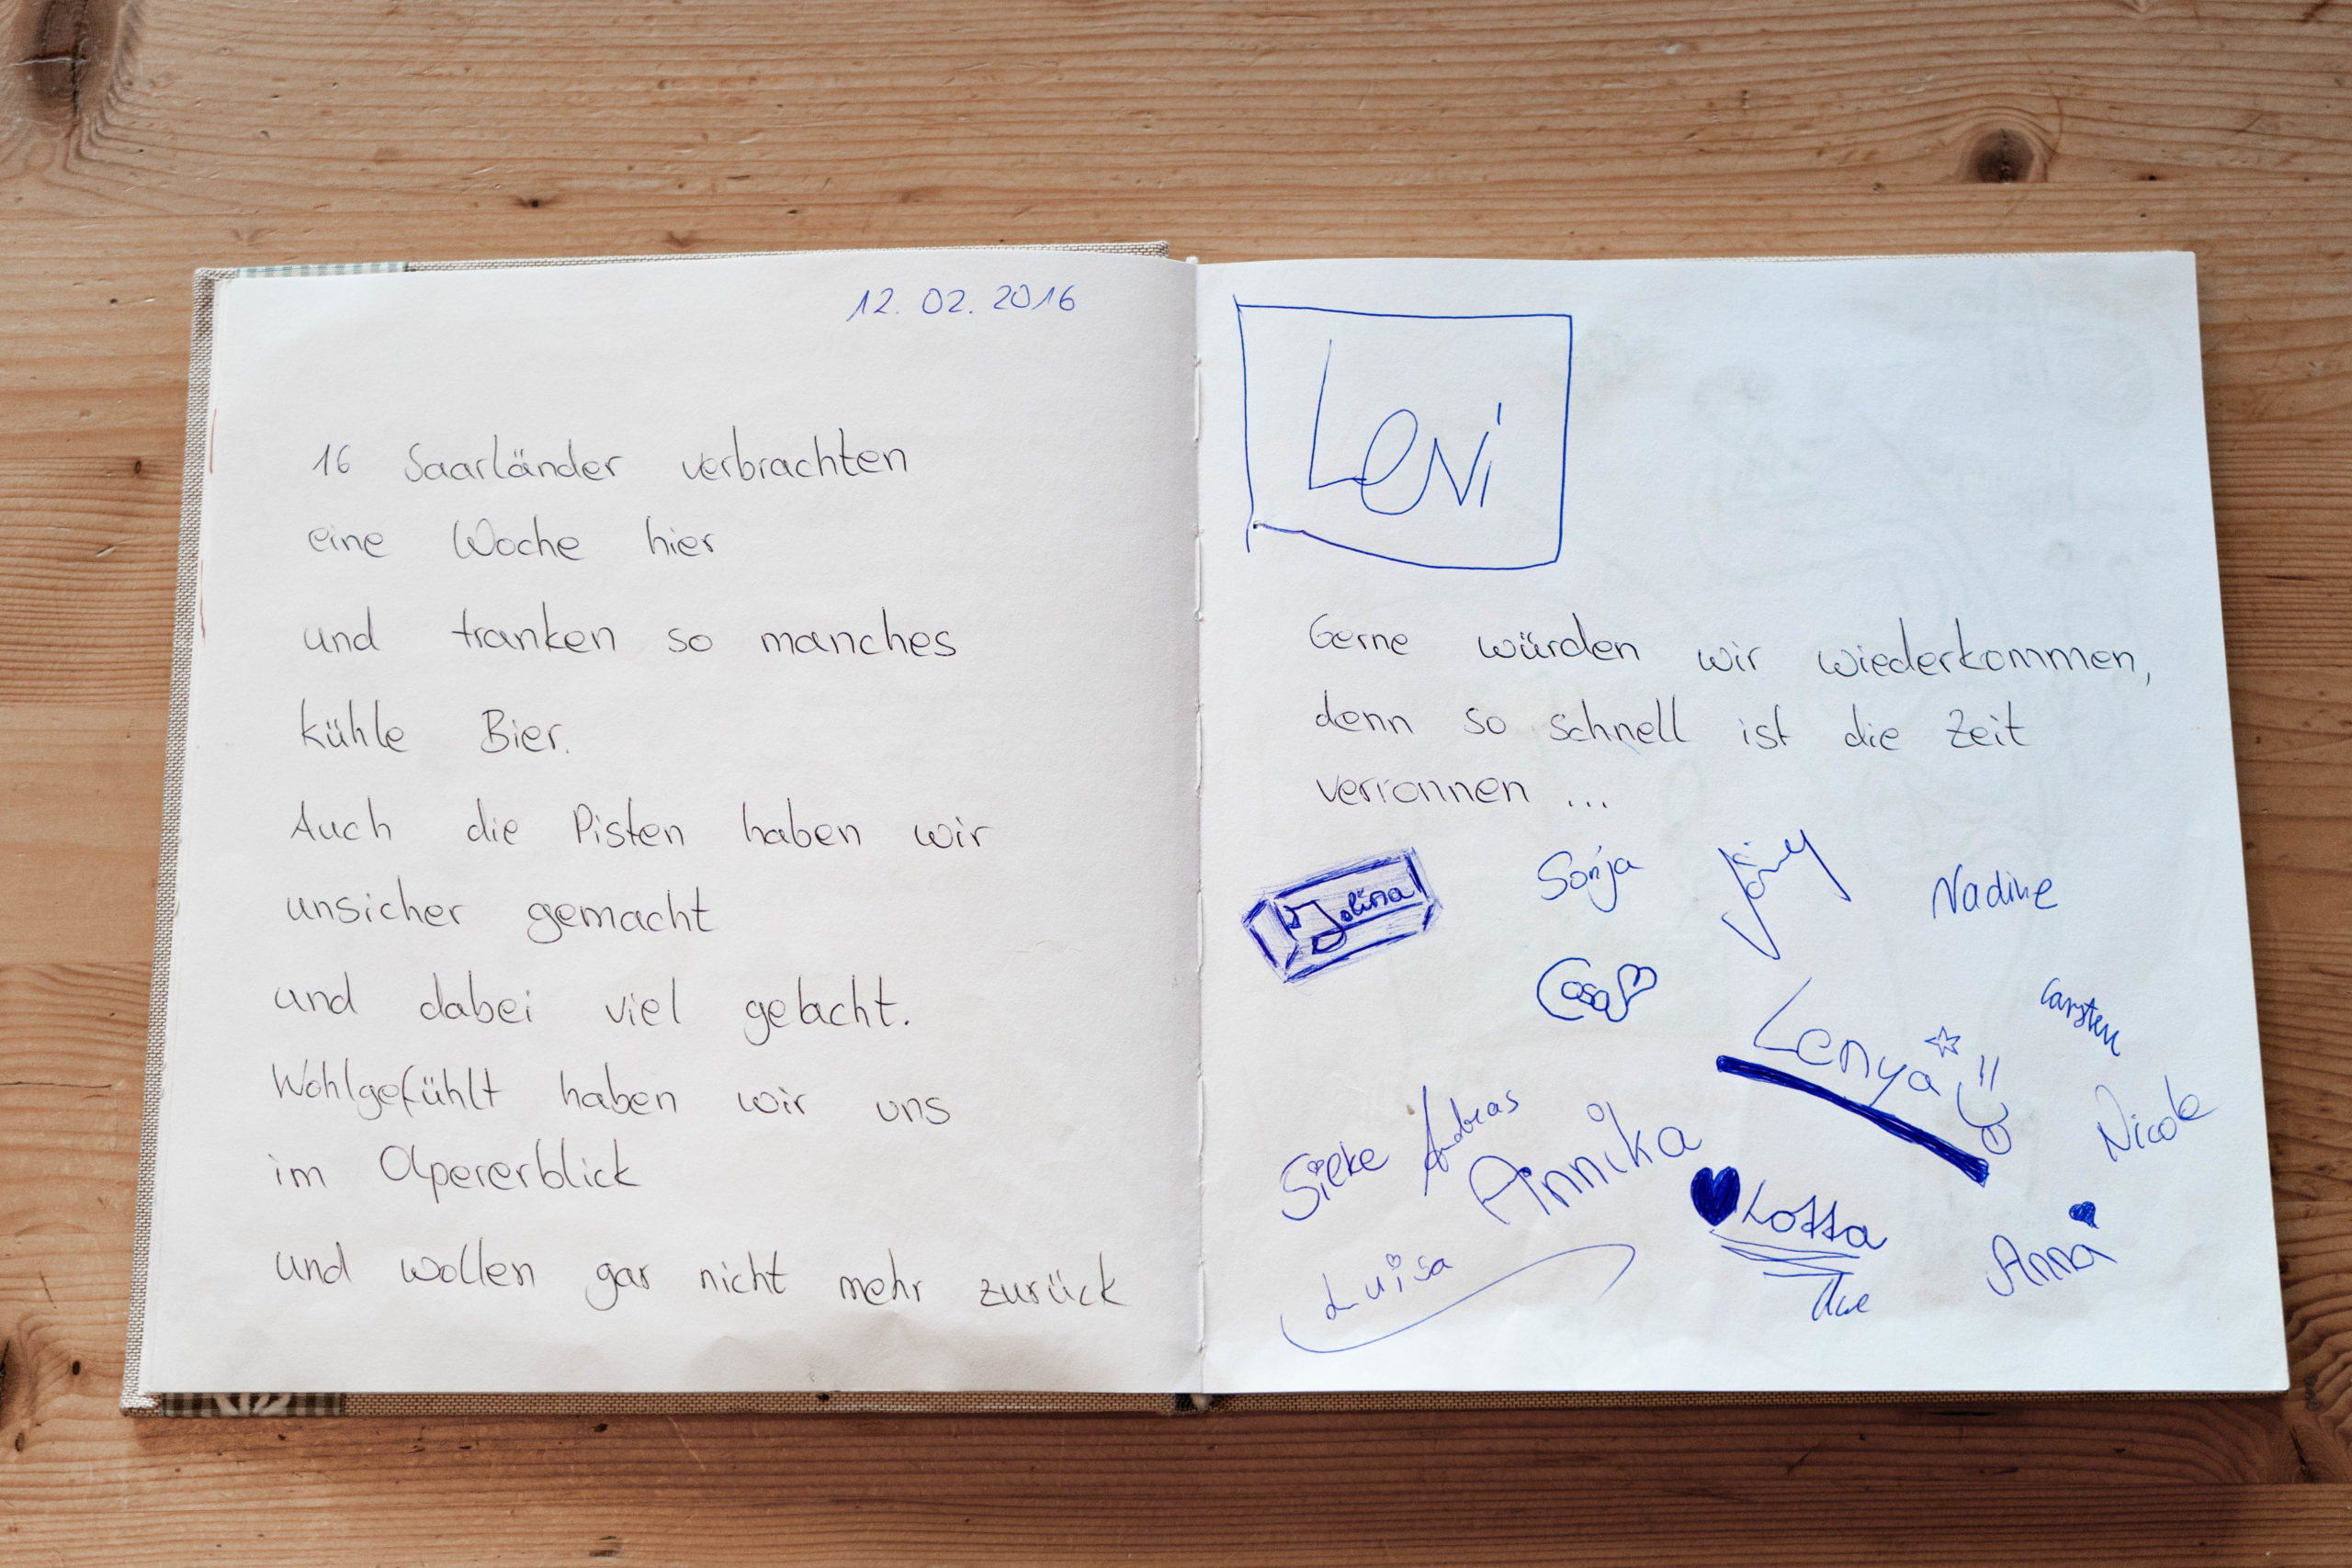 12. 02. 2016
16 Saarländer verbrachten
eine Woche hier
und tranken so manches
kühle Bier.
Auch die Pisten haben wir
unsicher gemacht
und dabei viel gelacht.
Wohlgefühlt haben wir uns
im Olpererblick
und wollen gar nicht mehr zurück
Leni
Gerne würden wir wiederkommen,
denn so schnell ist die Zeit
verronnen ...
Jolina
Sonja
Jörg
Nadine
Carsten
Lenya
Nicole
Andreas
Annika
Lotta
Anna
Luisa
Uwe